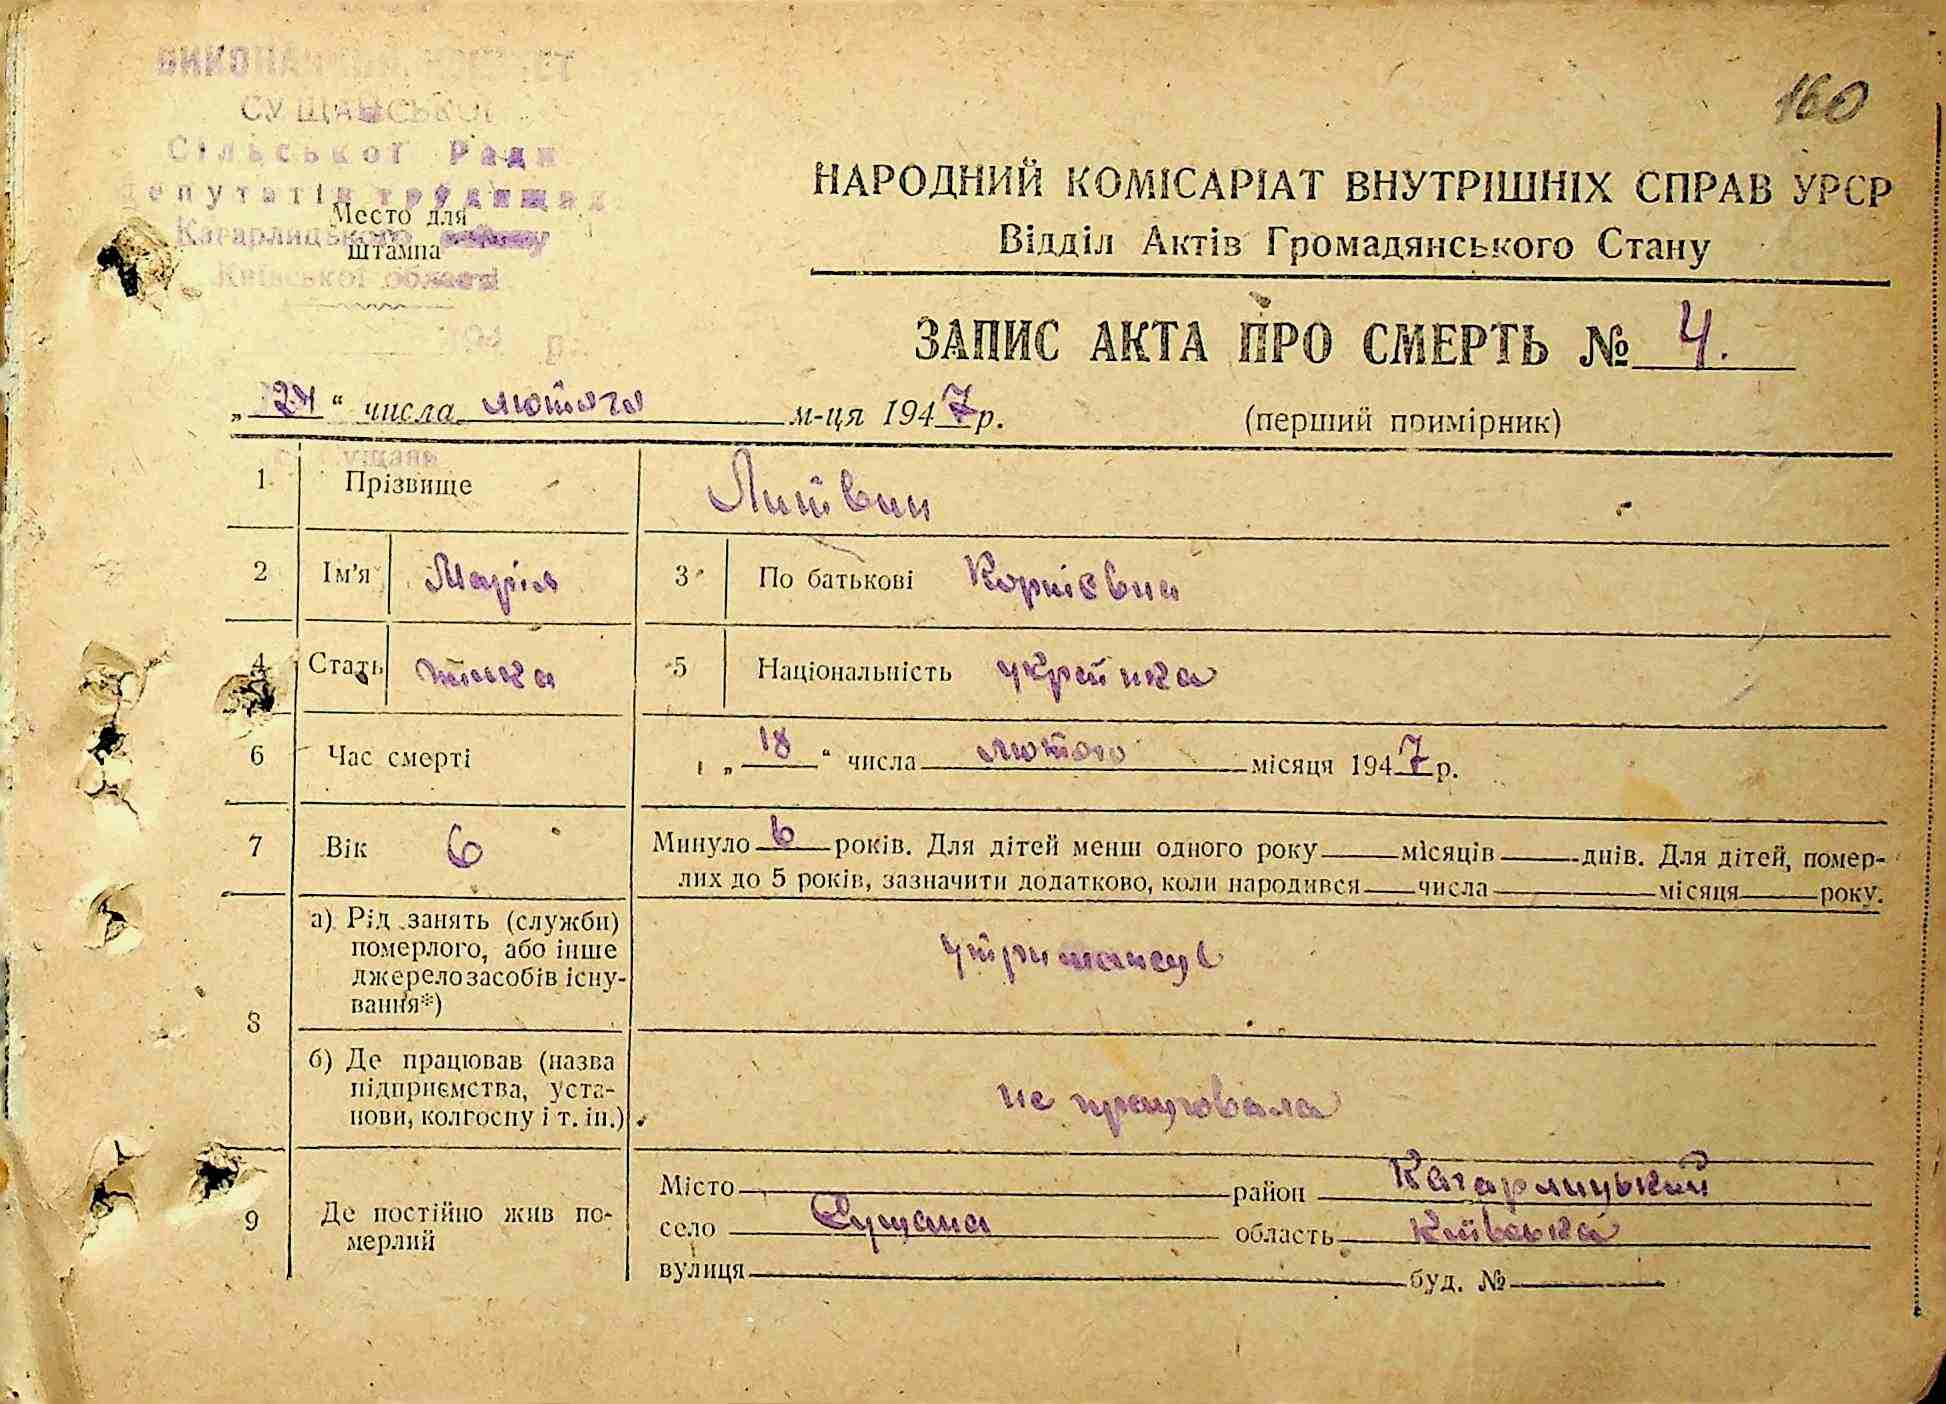 160
ВИКОНАВЧИЙ КОМІТЕТ
СУЩАНСЬКОЇ
Сільської Ради
депутатів трудящих
Кагарлицького району
Київської області
Место для
штампа
НАРОДНИЙ КОМІСАРІАТ ВНУТРІШНІХ СПРАВ УРСР
Відділ Актів Громадянського Стану
ЗАПИС АКТА ПРО СМЕРТЬ № 4.
„24“ числа лютого м-ця 1947 р.
(перший примірник)
1 Прізвище Литвин
2 Ім'я Марія 3 По батькові Корнієвна
4 Стать жінка 5 Національність українка
6 Час смерті „18“ числа лютого місяця 1947 р.
7 Вік 6 Минуло 6 років. Для дітей менш одного року місяців днів. Для дітей, помер-
лих до 5 років, зазначити додатково, коли народився числа місяця року.
8 а) Рід занять (служби)
померлого, або інше
джерело засобів існу-
вання*)
утриманець
б) Де працював (назва
підприємства, уста-
нови, колгоспу і т. ін.)
не працювала
9 Де постійно жив по-
мерлий
Місто район Кагарлицький
село Сущана область Київська
вулиця буд. №